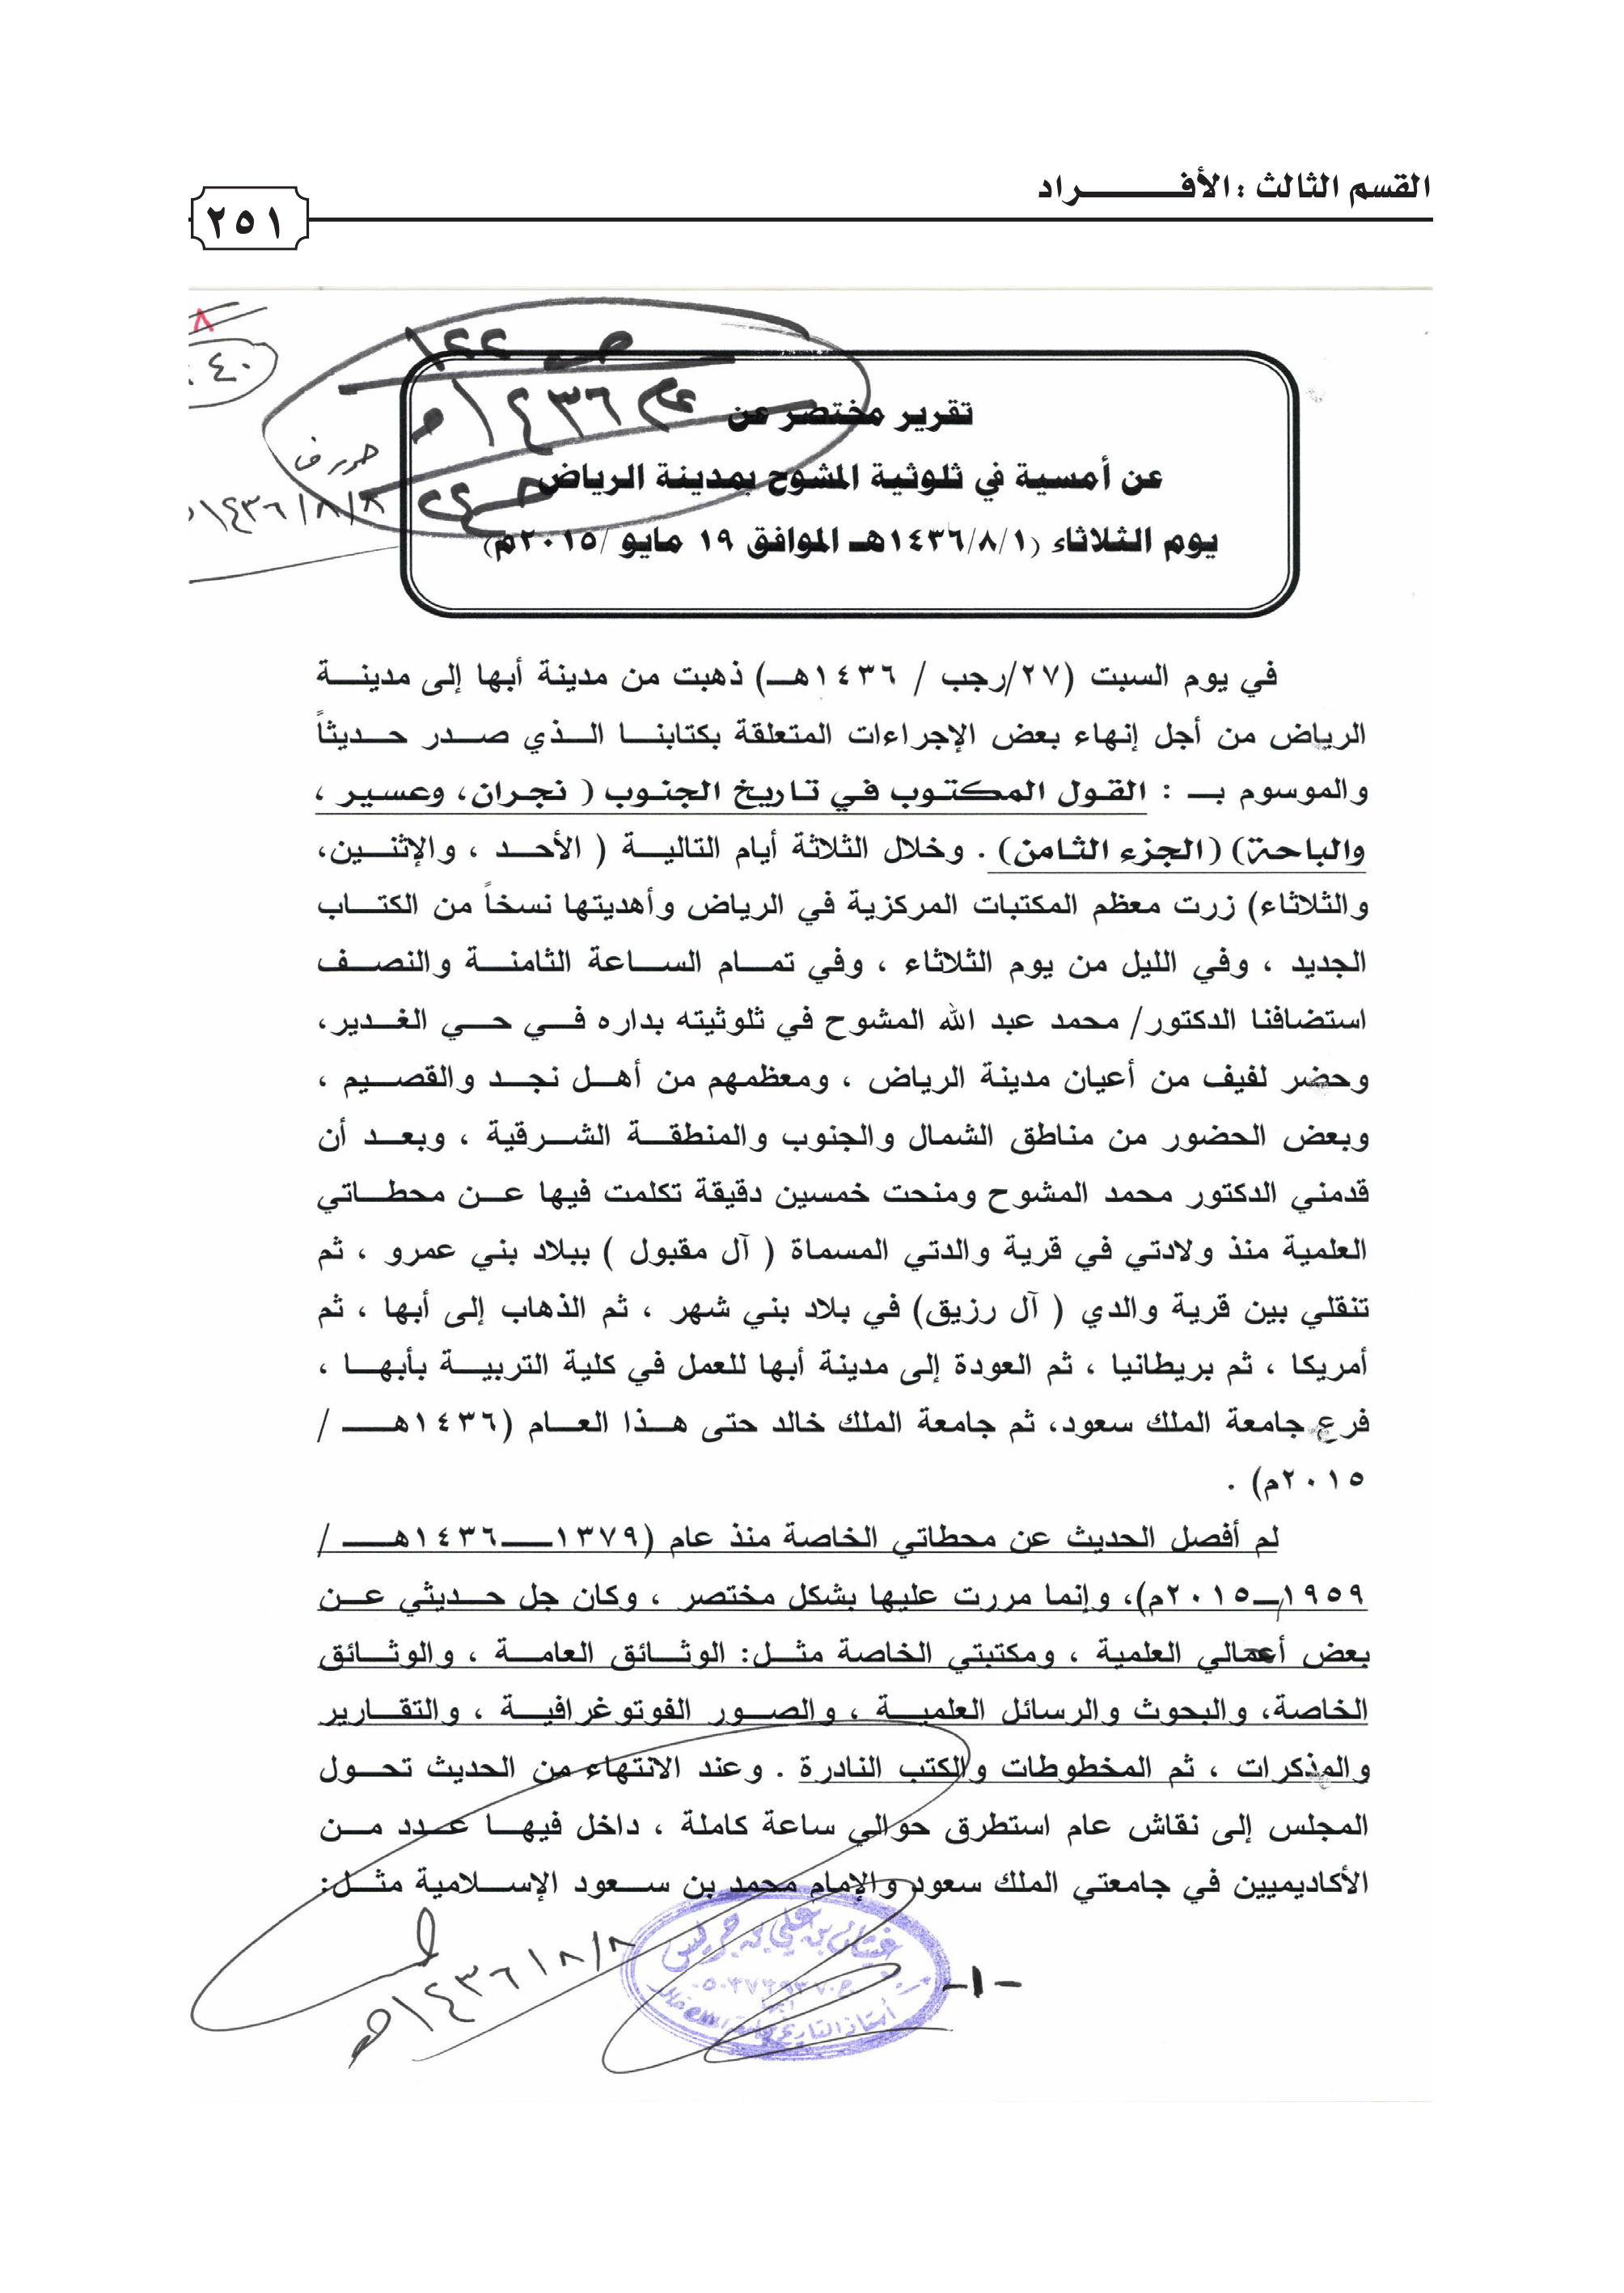 القسم الثالث : الأفـــــــــراد
٢٥١
صـ ١٤٤
عام ١٤٣٦هـ
٤٠
١٤٣٦/٨/٨
تقرير مختصر عن
عن أمسية في ثلوثية المشوح بمدينة الرياض
يوم الثلاثاء (١٤٣٦/٨/١هـ الموافق ١٩ مايو /٢٠١٥م)
في يوم السبت (٢٧/رجب / ١٤٣٦هــ) ذهبت من مدينة أبها إلى مدينــة
الرياض من أجل إنهاء بعض الإجراءات المتعلقة بكتابنــا الــذي صــدر حــديثاً
والموسوم بــ : القول المكتوب في تاريخ الجنوب ( نجران، وعسير ،
والباحة) (الجزء الثامن) . وخلال الثلاثة أيام التاليــة ( الأحــد ، والإثنــين،
والثلاثاء) زرت معظم المكتبات المركزية في الرياض وأهديتها نسخاً من الكتــاب
الجديد ، وفي الليل من يوم الثلاثاء ، وفي تمــام الســاعة الثامنــة والنصــف
استضافنا الدكتور/ محمد عبد الله المشوح في ثلوثيته بداره فــي حــي الغــدير،
وحضر لفيف من أعيان مدينة الرياض ، ومعظمهم من أهــل نجــد والقصــيم ،
وبعض الحضور من مناطق الشمال والجنوب والمنطقــة الشــرقية ، وبعــد أن
قدمني الدكتور محمد المشوح ومنحت خمسين دقيقة تكلمت فيها عــن محطــاتي
العلمية منذ ولادتي في قرية والدتي المسماة ( آل مقبول ) ببلاد بني عمرو ، ثم
تنقلي بين قرية والدي ( آل رزيق) في بلاد بني شهر ، ثم الذهاب إلى أبها ، ثم
أمريكا ، ثم بريطانيا ، ثم العودة إلى مدينة أبها للعمل في كلية التربيــة بأبهــا ،
فرع جامعة الملك سعود، ثم جامعة الملك خالد حتى هــذا العــام (١٤٣٦هــ /
٢٠١٥م) .
لم أفصل الحديث عن محطاتي الخاصة منذ عام (١٣٧٩ــ١٤٣٦هــ /
١٩٥٩ــ٢٠١٥م)، وإنما مررت عليها بشكل مختصر ، وكان جل حــديثي عــن
بعض أعمالي العلمية ، ومكتبتي الخاصة مثــل: الوثــائق العامــة ، والوثــائق
الخاصة، والبحوث والرسائل العلميــة ، والصــور الفوتوغرافيــة ، والتقــارير
والمذكرات ، ثم المخطوطات والكتب النادرة . وعند الانتهاء من الحديث تحــول
المجلس إلى نقاش عام استطرق حوالي ساعة كاملة ، داخل فيهــا عــدد مــن
الأكاديميين في جامعتي الملك سعود والإمام محمد بن ســعود الإســلامية مثــل:
غيثان بن علي بن جريس
١٤٣٦/٨/٨هـ
-١-